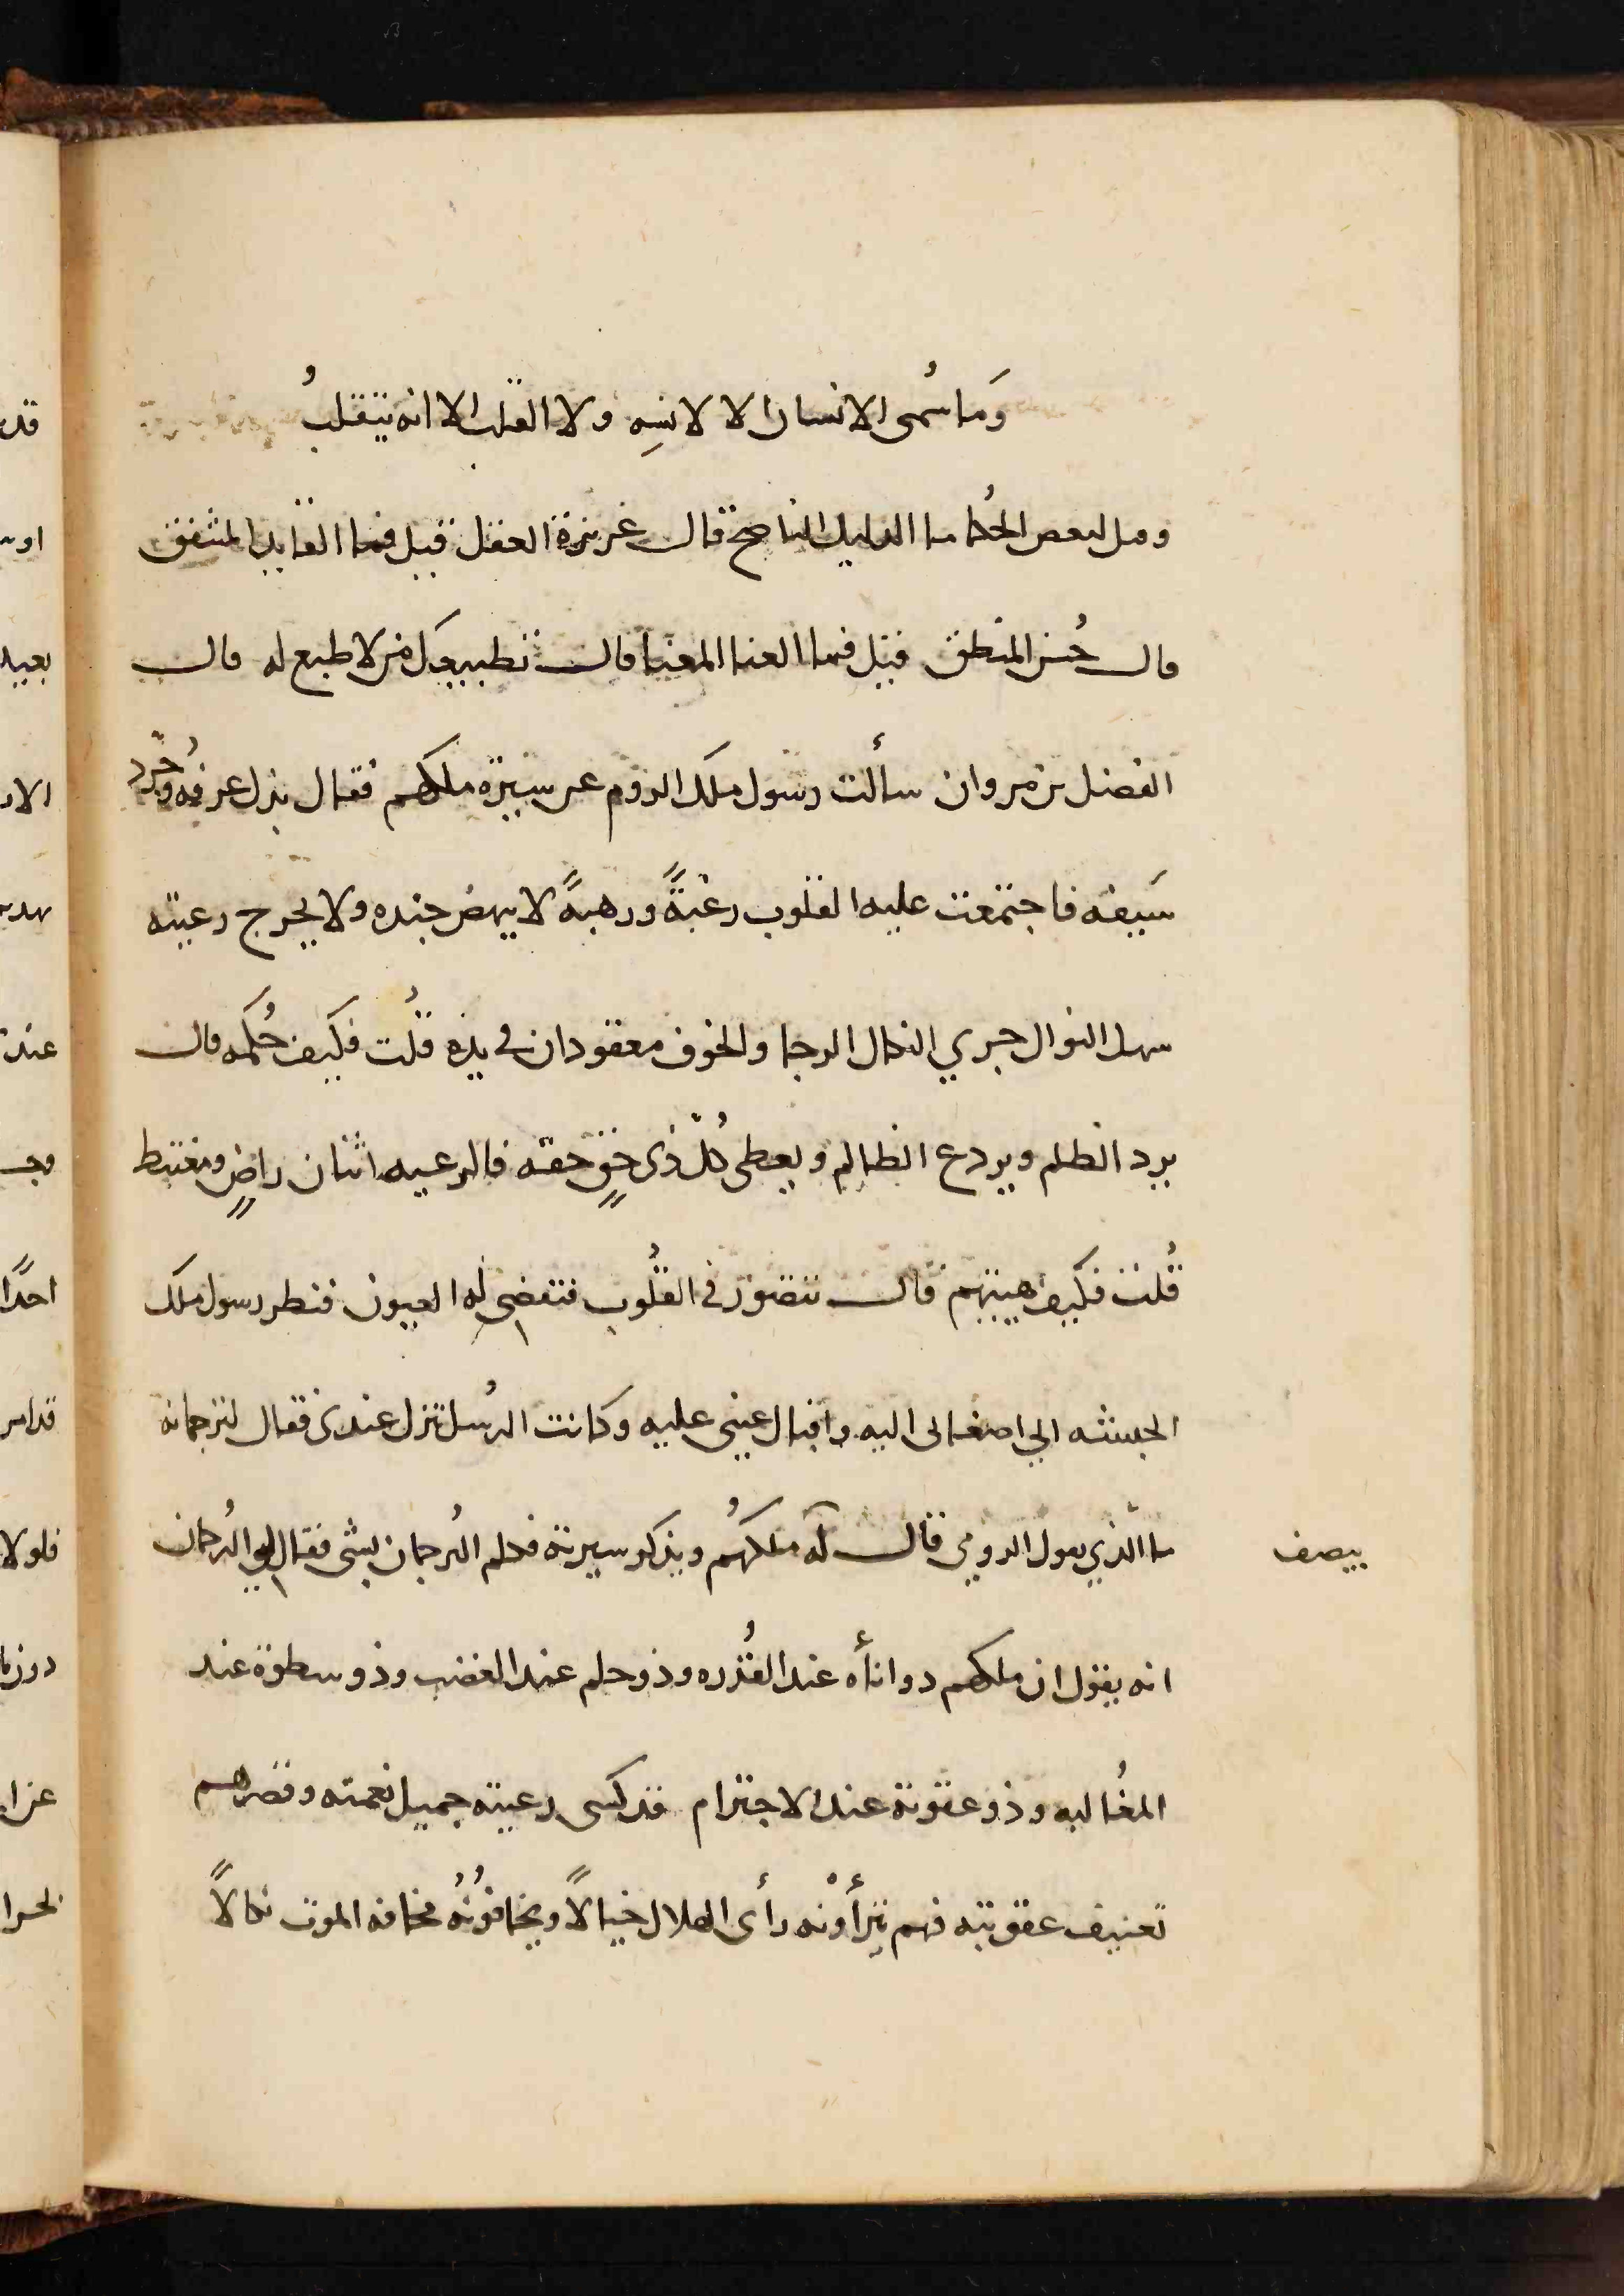 وَما سُمى الانسان الا لانسِه ولا القلب الا انه يتقلبُ
وقيل لبعض الحُكما ما الدليل الناصح قال غريزة العقل قيل فما القايد المشفق
قال حُسن المنطق قيل فما العنا المعنيا قال تطبيعك من لا طبع له قال
الفضل بن مروان سألت رسول ملك الروم عن سيرة ملكهم فقال بذل عرفه وجُرّد
سَيفه فاجتمعت عليه القلوب رغبةً ورهبةً لا يهضم جنده ولا يحرج رعيته
سهل النوال جري النكال الرجا والخوف معقودان في يده قُلت فكيف حُكمه قال
يرد الظلم ويردع الظالم ويعطى كُلّ ذى حقٍ حقه فالرعيه اثنان راضٍ ومغتبط
قُلت فكيف هيبتهم قال تتصور في القلُوب فتغضى له العيون فنظر رسول ملك
الحبشه الي اصغالى اليه واقبال عينى عليه وكانت الرسُل تنزل عندى فقال لترجمانه
ما الّذي يقول الرومي قال له ملكهُم ويذكر سيرته فكلم التُرجمان بشى فقال لي التُرجمان
يصف
انه يقول ان ملكهم ذو اناأه عند القُدره وذو حلم عند الغضب وذو سطوة عند
المغُالبه وذو عقوبة عند الاجترام قد كسى رعيته جميل نعمته وقصرهم
تعنيف عقوبته فهم يترأونه رأى الهلال خيالاً ويخافونُهُ مخافه الموت نكالاً